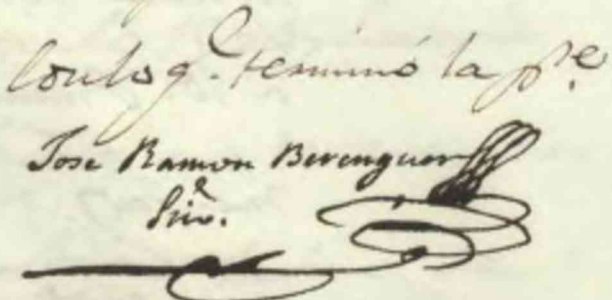 Con lo q.e terminó la pr.te
José Ramon Berenguer
Srio.